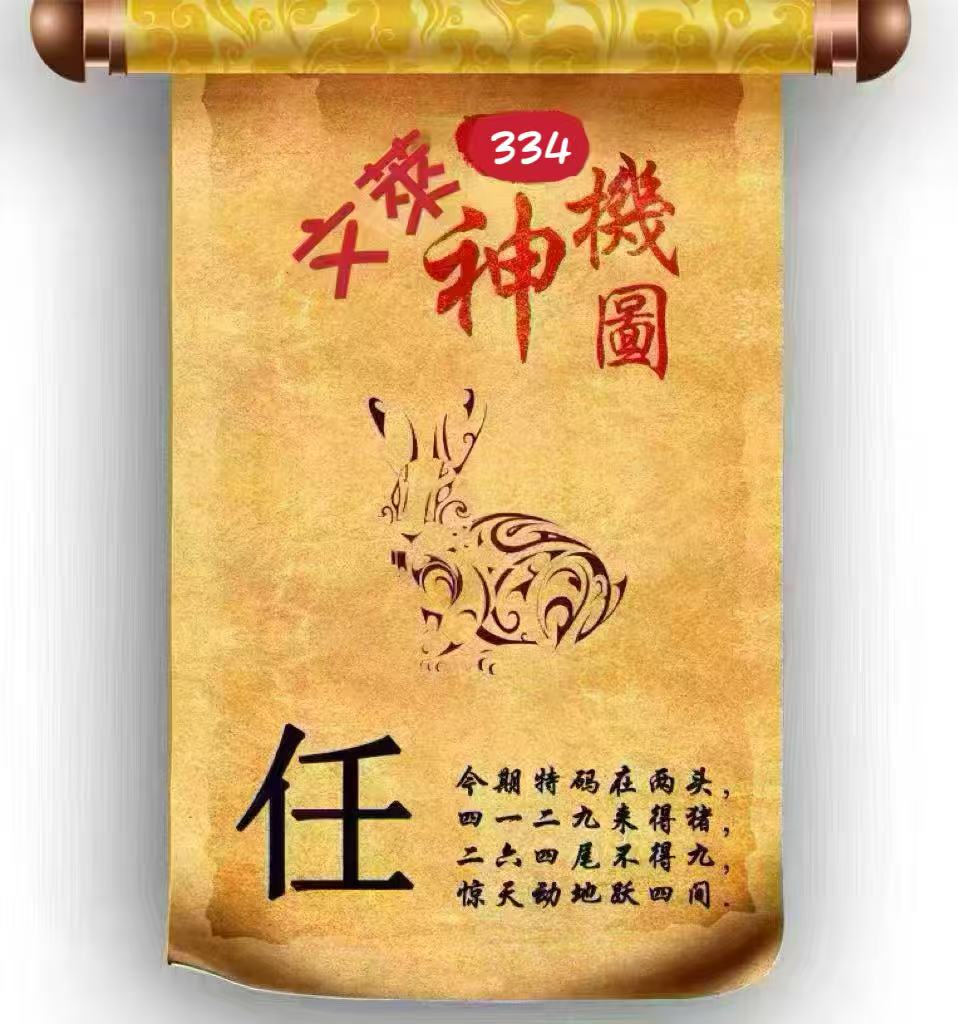 334
文莱
神機圖
任
今期特码在两头，
四一二九来得猪，
二六四尾不得九，
惊天动地跃四间.